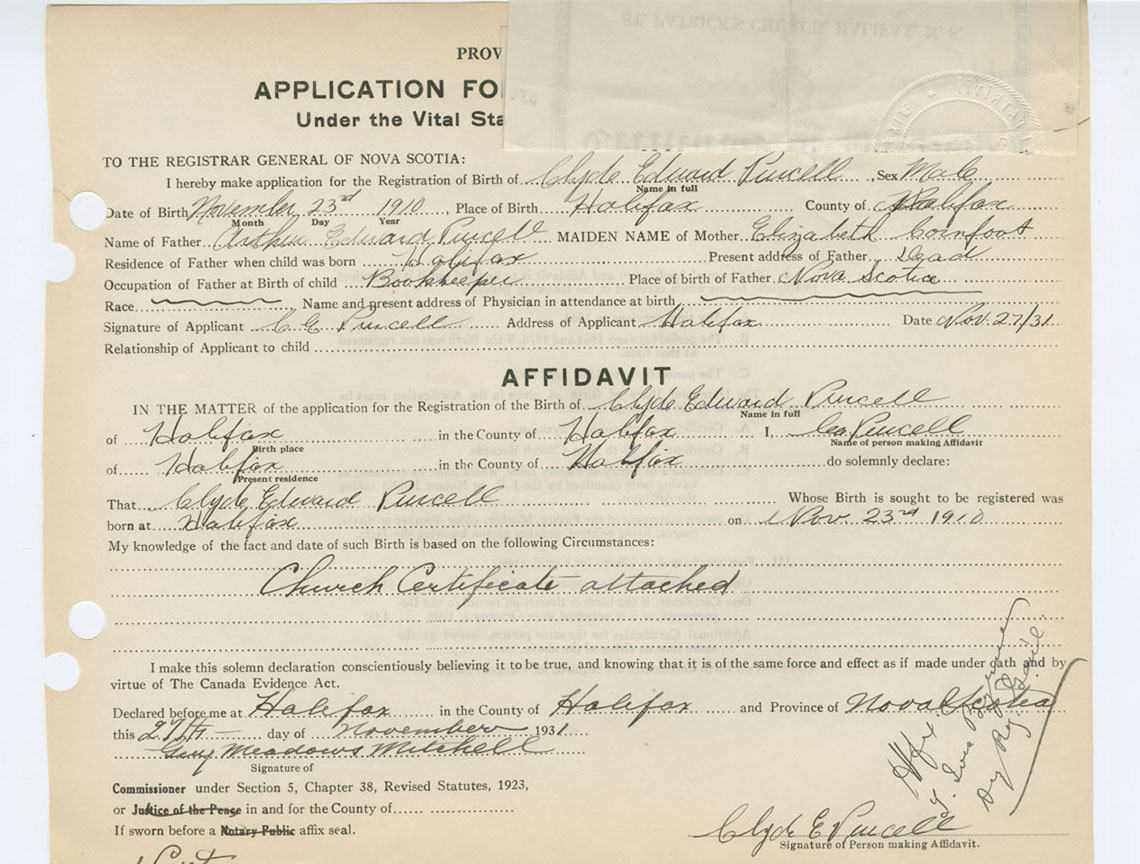 ST. PATRICK'S CHURCH, HALIFAX, N. S.
PROV
APPLICATION FO
Under the Vital Sta
TO THE REGISTRAR GENERAL OF NOVA SCOTIA:
I hereby make application for the Registration of Birth of Clyde Edward Purcell, Sex Male
Name in full
Date of Birth November 23rd 1910, Place of Birth Halifax County of Halifax
Month Day Year
Name of Father Arthur Edward Purcell MAIDEN NAME of Mother Elizabeth Cornfoot
Residence of Father when child was born Halifax Present address of Father Dead
Occupation of Father at Birth of child Bookkeeper Place of birth of Father Nova Scotia
Race Name and present address of Physician in attendance at birth
Signature of Applicant C E Purcell Address of Applicant Halifax Date Nov. 27/31.
Relationship of Applicant to child
AFFIDAVIT
IN THE MATTER of the application for the Registration of the Birth of Clyde Edward Purcell
Name in full
of Halifax in the County of Halifax I, Purcell
Birth place Name of person making Affidavit
of Halifax in the County of Halifax do solemnly declare:
Present residence
That Clyde Edward Purcell Whose Birth is sought to be registered was
born at Halifax on Nov. 23rd 1910
My knowledge of the fact and date of such Birth is based on the following Circumstances:
Church Certificate attached
I make this solemn declaration conscientiously believing it to be true, and knowing that it is of the same force and effect as if made under oath and by
virtue of The Canada Evidence Act.
Declared before me at Halifax in the County of Halifax and Province of Nova Scotia
this 27th day of November 1931
Meadows Mitchell
Signature of
Commissioner under Section 5, Chapter 38, Revised Statutes, 1923,
or Justice of the Peace in and for the County of
If sworn before a Notary Public affix seal.
Clyde E Purcell
Signature of Person making Affidavit.